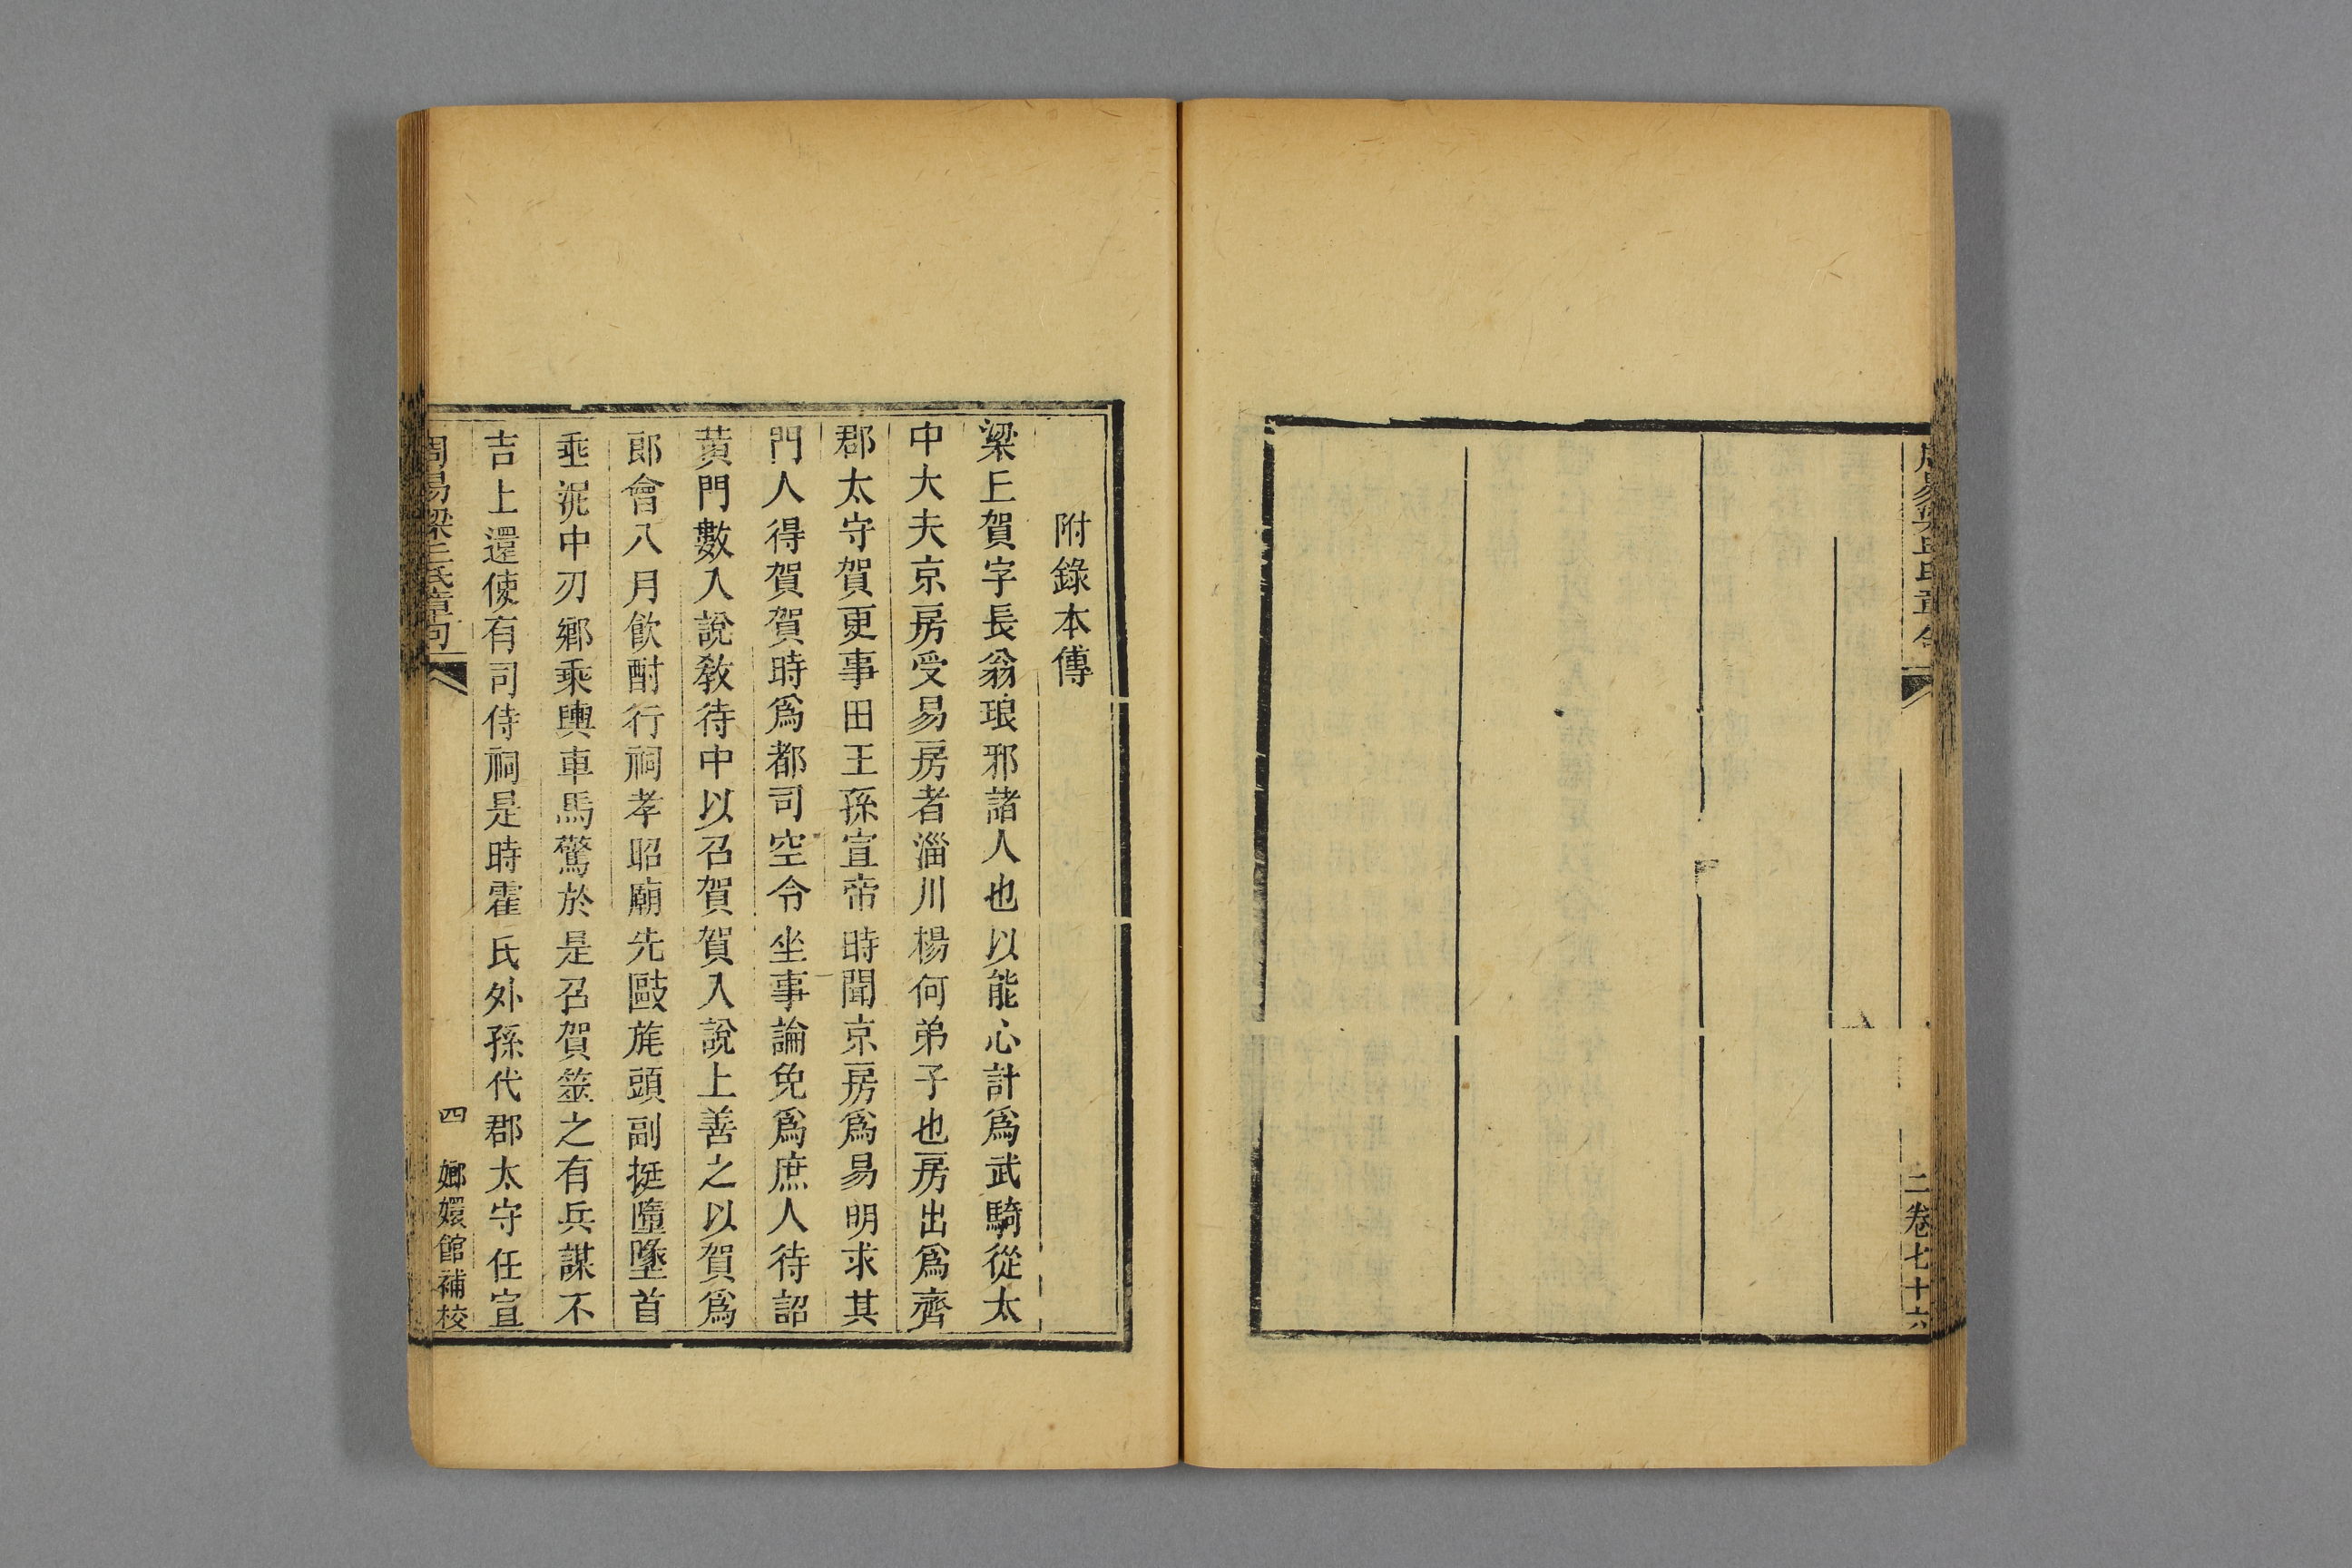 周易梁𠀉氏章句 二 卷七十六
附錄本傳
梁𠀉賀字長翁琅邪諸人也以能心計爲武騎從太
中大夫京房受易房者淄川楊何弟子也房出爲齊
郡太守賀更事田王孫宣帝時聞京房爲易明求其
門人得賀賀時爲都司空令坐事論免爲庶人待詔
黃門數入說敎待中以召賀賀入說上善之以賀爲
郎會八月飮酎行祠孝昭廟先敺旄頭副挺墮墜首
垂泥中刃鄉乘輿車馬驚於是召賀筮之有兵謀不
吉上還使有司侍祠是時霍氏外孫代郡太守任宣
周易梁𠀉氏章句 四 嫏嬛館補校